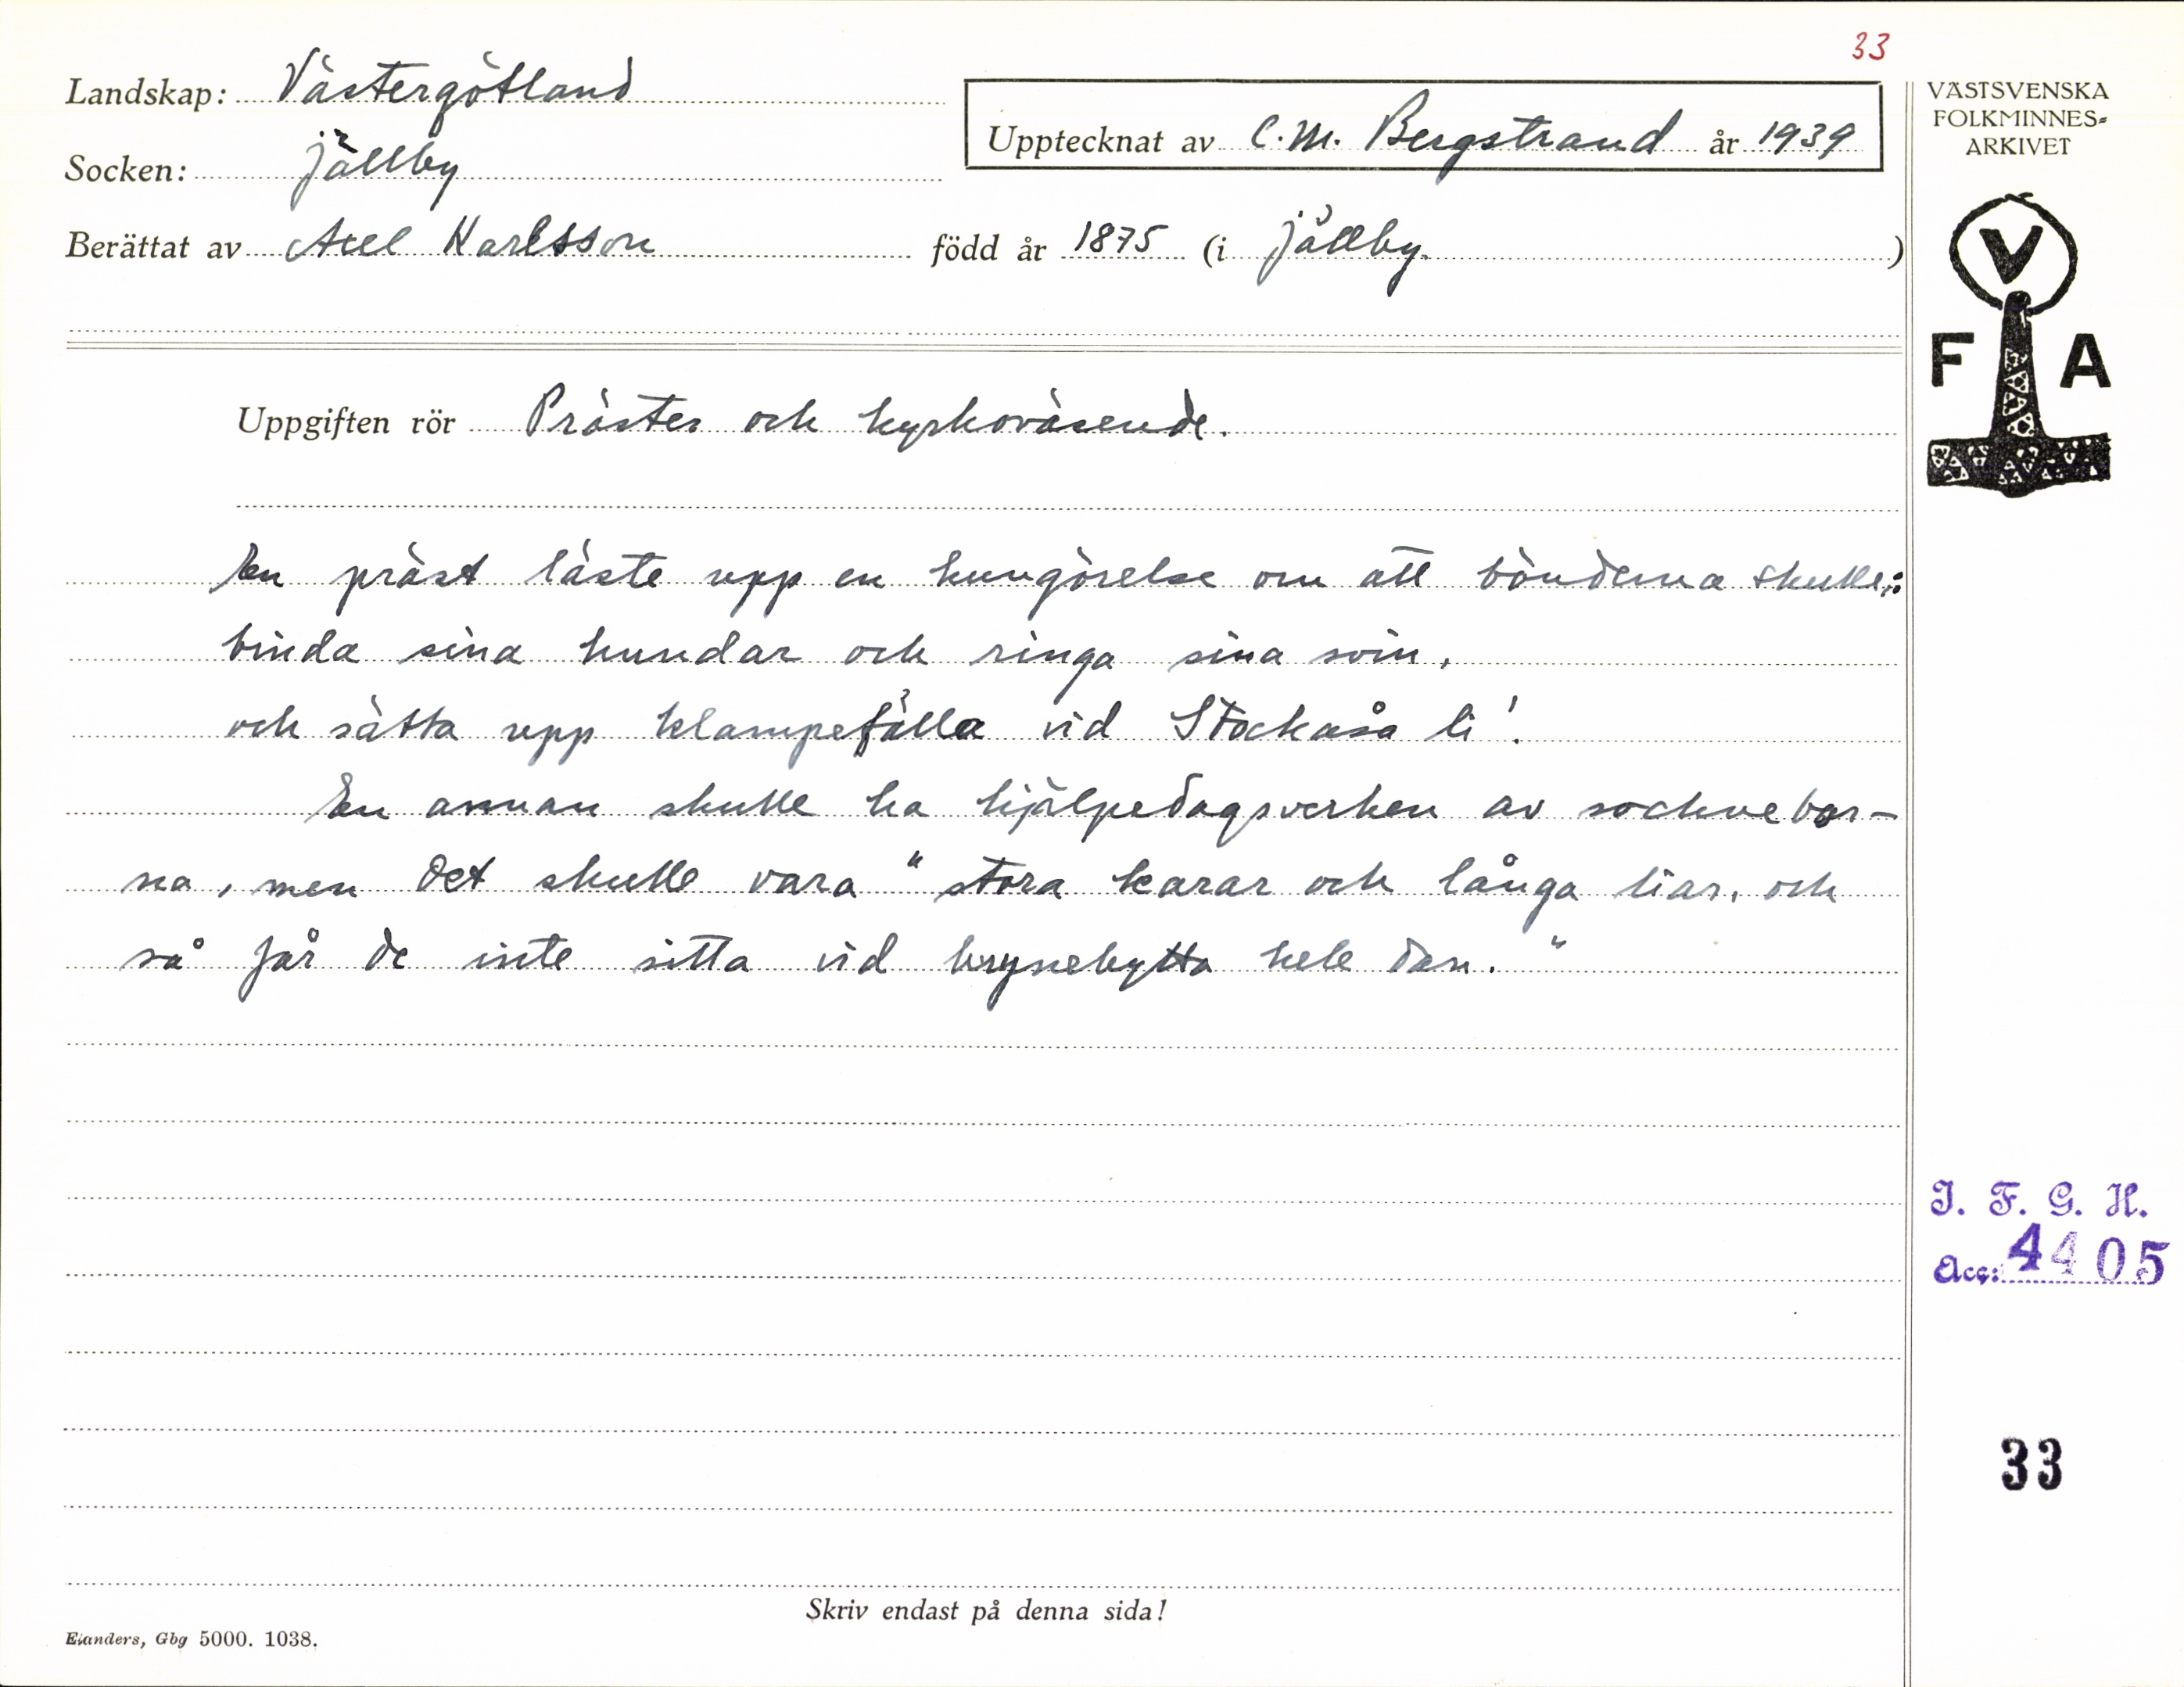 33
Landskap: Västergötland
Socken: Jällby
Upptecknat av C.M. Bergstrand år 1939
Berättat av Axel Karlsson född år 1875 (i Jällby.)
Uppgiften rör Präster och kyrkoväsende.
En präst läste upp en kungörelse om att bönderna skulle:
binda sina hundar och ringa sina svin,
och sätta upp klampefälla vid Stockaså li!
En annan skulle ha hjälpedagsverken av socknebor-
na, men det skulle vara "stora karar och långa liar, och
så får de inte sitta vid brynebytta hele dan."
Skriv endast på denna sida!
Elanders, Gbg 5000. 1038.
VÄSTSVENSKA
FOLKMINNES=
ARKIVET
V
F A
I. F. G. H.
Acc: 4405
33